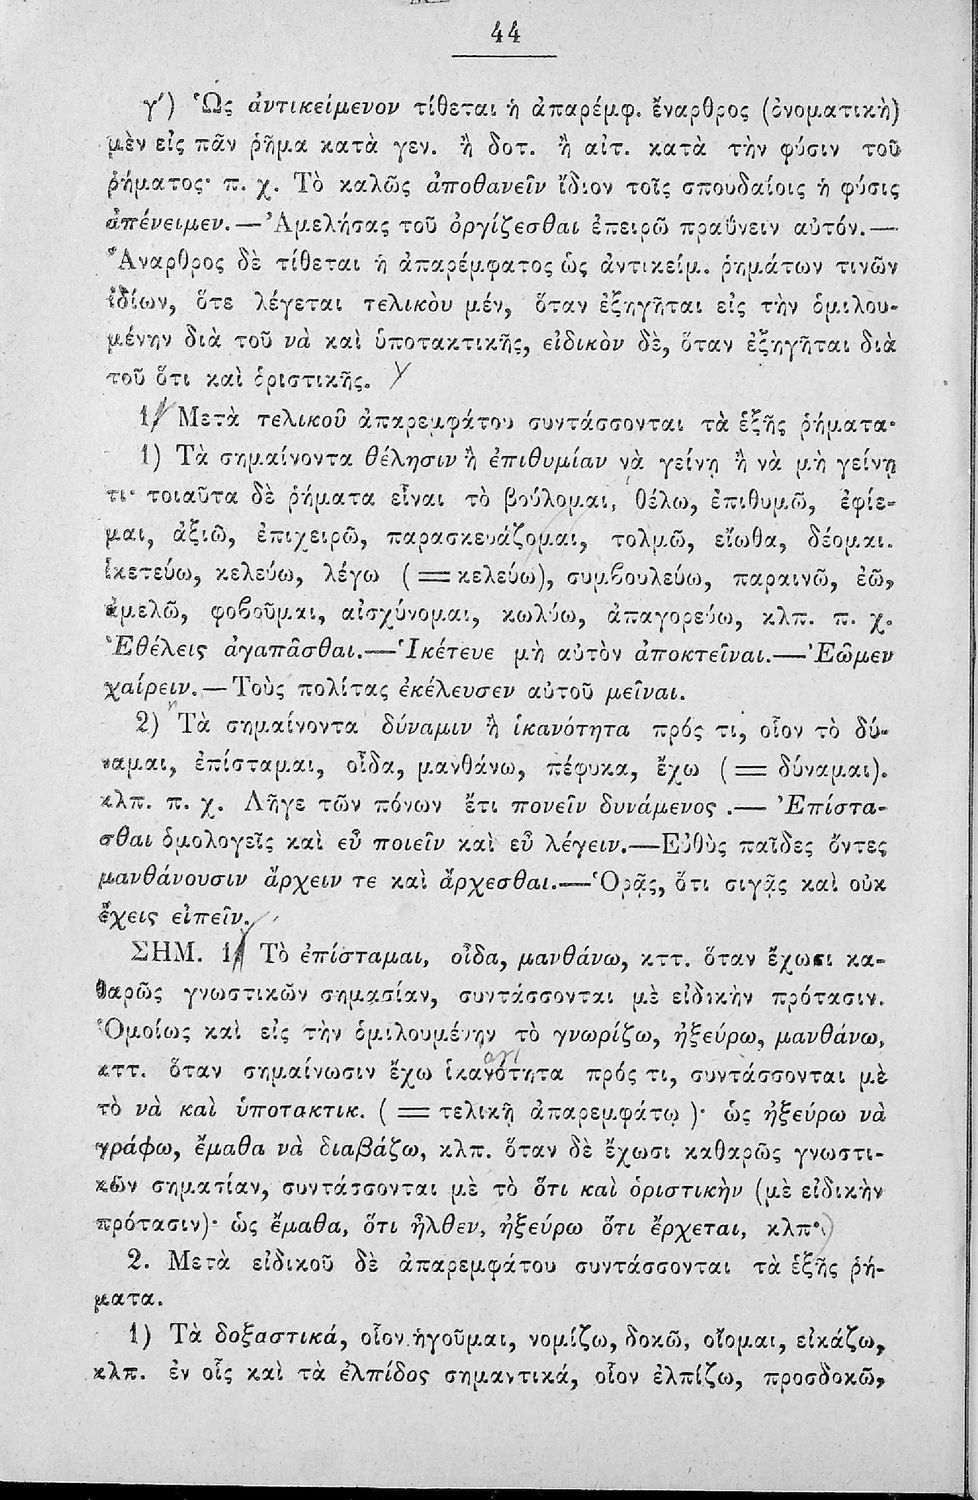 44
γ´) Ὡς ἀντικείμενον τίθεται ἡ ἀπαρέμφ. ἔναρθρος (ὀνοματικὴ)
μὲν εἰς πᾶν ῥῆμα κατὰ γεν. ἢ δοτ. ἢ αἰτ. κατὰ τὴν φύσιν τοῦ
ῥήματος· π. χ. Τὸ καλῶς ἀποθανεῖν ἴδιον τοῖς σπουδαίοις ἡ φύσις
ἀπένειμεν.—Ἀμελήσας τοῦ ὀργίζεσθαι ἐπειρῶ πραΰνειν αὐτόν.—
Ἄναρθρος δὲ τίθεται ἡ ἀπαρέμφατος ὡς ἀντικείμ. ῥημάτων τινῶν
ἰδίων, ὅτε λέγεται τελικὸν μέν, ὅταν ἐξηγῆται εἰς τὴν ὁμιλου-
μένην διὰ τοῦ νὰ καὶ ὑποτακτικῆς, εἰδικὸν δὲ, ὅταν ἐξηγῆται διὰ
τοῦ ὅτι καὶ ὁριστικῆς.
1 Μετὰ τελικοῦ ἀπαρεμφάτου συντάσσονται τὰ ἑξῆς ῥήματα·
1) Τὰ σημαίνοντα θέλησιν ἢ ἐπιθυμίαν νὰ γείνῃ ἢ νὰ μὴ γείνῃ
τι· τοιαῦτα δὲ ῥήματα εἶναι τὸ βούλομαι, θέλω, ἐπιθυμῶ, ἐφίε-
μαι, ἀξιῶ, ἐπιχειρῶ, παρασκευάζομαι, τολμῶ, εἴωθα, δέομαι.
ἱκετεύω, κελεύω, λέγω (=κελεύω), συμβουλεύω, παραινῶ, ἐῶ,
ἀμελῶ, φοβοῦμαι, αἰσχύνομαι, κωλύω, ἀπαγορεύω, κλπ. π. χ.
Ἐθέλεις ἀγαπᾶσθαι.—Ἱκέτευε μὴ αὐτὸν ἀποκτεῖναι.—Ἐῶμεν
χαίρειν.—Τοὺς πολίτας ἐκέλευσεν αὐτοῦ μεῖναι.
2) Τὰ σημαίνοντα δύναμιν ἢ ἱκανότητα πρός τι, οἷον τὸ δύ-
ναμαι, ἐπίσταμαι, οἶδα, μανθάνω, πέφυκα, ἔχω (= δύναμαι).
κλπ. π. χ. Λῆγε τῶν πόνων ἔτι πονεῖν δυνάμενος .— Ἐπίστα-
σθαι ὁμολογεῖς καὶ εὖ ποιεῖν καὶ εὖ λέγειν.—Εὐθὺς παῖδες ὄντες
μανθάνουσιν ἄρχειν τε καὶ ἄρχεσθαι.—Ὁρᾷς, ὅτι σιγᾷς καὶ οὐκ
ἔχεις εἰπεῖν.
ΣΗΜ. 1 Τὸ ἐπίσταμαι, οἶδα, μανθάνω, κττ. ὅταν ἔχωσι κα-
θαρῶς γνωστικῶν σημασίαν, συντάσσονται μὲ εἰδικὴν πρότασιν.
Ὁμοίως καὶ εἰς τὴν ὁμιλουμένην τὸ γνωρίζω, ἠξεύρω, μανθάνω,
κττ. ὅταν σημαίνωσιν ἔχω ἱκανότητα πρός τι, συντάσσονται μὲ
τὸ νὰ καὶ ὑποτακτικ. (= τελικῇ ἀπαρεμφάτῳ )· ὡς ἠξεύρω νὰ
γράφω, ἔμαθα νὰ διαβάζω, κλπ. ὅταν δὲ ἔχωσι καθαρῶς γνωστι-
κῶν σημασίαν, συντάσσονται μὲ τὸ ὅτι καὶ ὁριστικὴν (μὲ εἰδικὴν
πρότασιν)· ὡς ἔμαθα, ὅτι ἦλθεν, ἠξεύρω ὅτι ἔρχεται, κλπ·
2. Μετὰ εἰδικοῦ δὲ ἀπαρεμφάτου συντάσσονται τὰ ἑξῆς ῥή-
ματα.
1) Τὰ δοξαστικά, οἷον ἡγοῦμαι, νομίζω, δοκῶ, οἴομαι, εἰκάζω,
κλπ. ἐν οἷς καὶ τὰ ἐλπίδος σημαντικά, οἷον ἐλπίζω, προσδοκῶ,